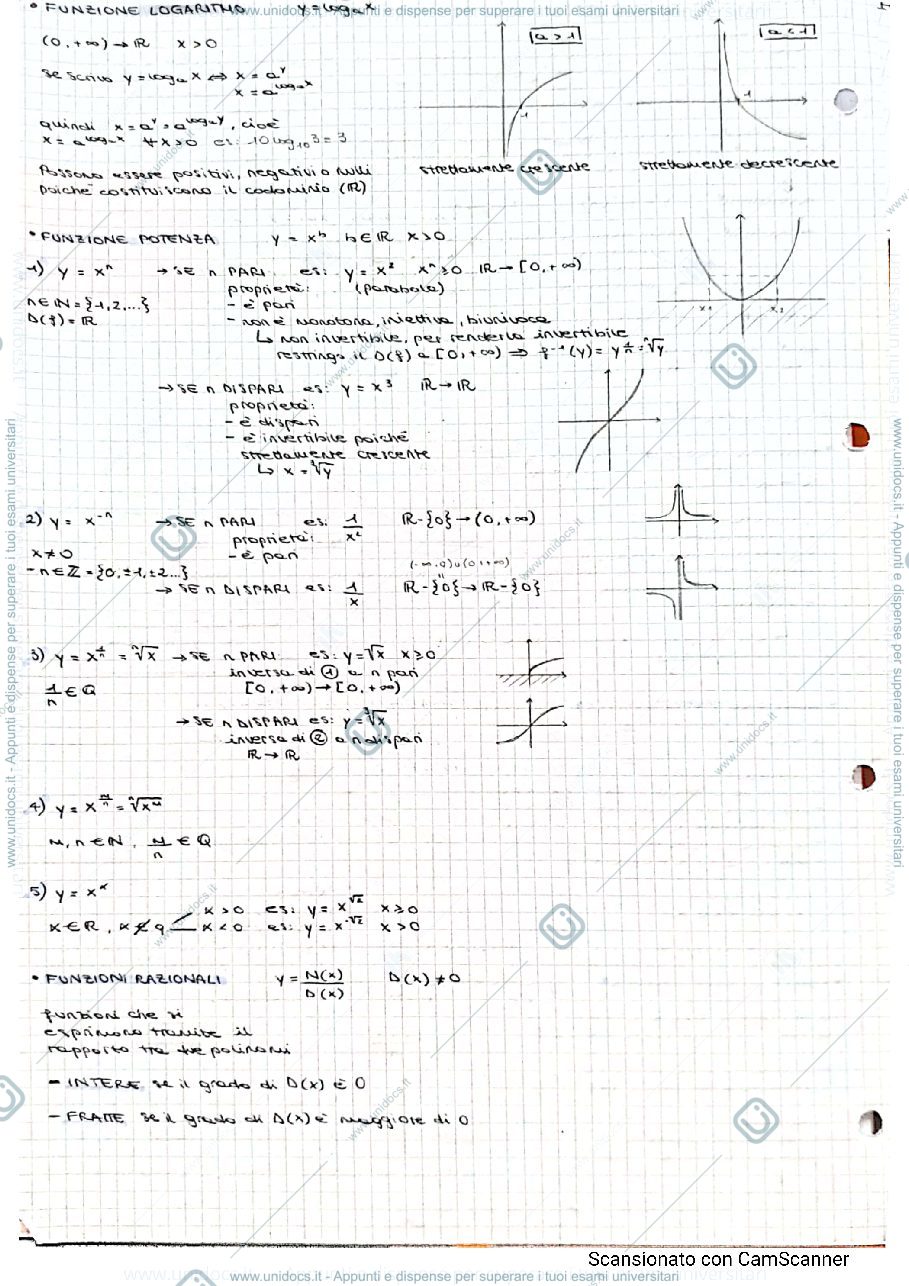 www.unidocs.it - Appunti e dispense per superare i tuoi esami universitari
• FUNZIONE LOGARITMO y = logₐ x
a > 1
a < 1
(0, +∞) → ℝ x > 0
se scrivo y = logₐ x ⇔ x = a^y
x = a^(logₐ x)
quindi x = a^y = a^(logₐ y), cioè
x = a^(logₐ x) ∀ x > 0 es: 10 log₁₀ 3 = 3
Possono essere positivi, negativi o nulli
poiché costituiscono il codominio (ℝ)
strettamente crescente
strettamente decrescente
• FUNZIONE POTENZA y = x^b b ∈ ℝ x > 0
1) y = xⁿ → SE n PARI es: y = x² xⁿ ≥ 0 ℝ → [0, +∞)
proprietà: (parabola)
n ∈ ℕ = {1, 2, ...} - è pari
D(f) = ℝ - non è monotona, iniettiva, biunivoca
↳ non invertibile, per renderla invertibile
restringo il D(f) a [0, +∞) ⇒ f⁻¹(y) = y^(1/n) = ⁿ√y
x₁ x₂
→ SE n DISPARI es: y = x³ ℝ → ℝ
proprietà:
- è dispari
- è invertibile poiché
strettamente crescente
↳ x = ³√y
2) y = x⁻ⁿ → SE n PARI es: 1/x² ℝ-{0} → (0, +∞)
proprietà:
x ≠ 0 - è pari
-n ∈ ℤ = {0, ±1, ±2...} (-∞, 0) ∪ (0, +∞)
→ SE n DISPARI es: 1/x ℝ-{0} → ℝ-{0}
3) y = x^(1/n) = ⁿ√x → SE n PARI es: y = √x x ≥ 0
inversa di ① a n pari
1/n ∈ Q [0, +∞) → [0, +∞)
→ SE n DISPARI es: y = ³√x
inversa di ② a n dispari
ℝ → ℝ
4) y = x^(m/n) = ⁿ√x^m
m, n ∈ ℕ, m/n ∈ Q
5) y = x^α
α > 0 es: y = x^√2 x ≥ 0
α ∈ ℝ, α ∉ q α < 0 es: y = x^-√2 x > 0
• FUNZIONI RAZIONALI y = N(x)/D(x) D(x) ≠ 0
funzioni che si
esprimono tramite il
rapporto tra due polinomi
- INTERE se il grado di D(x) è 0
- FRATTE se il grado di D(x) è maggiore di 0
Scansionato con CamScanner
www.unidocs.it - Appunti e dispense per superare i tuoi esami universitari